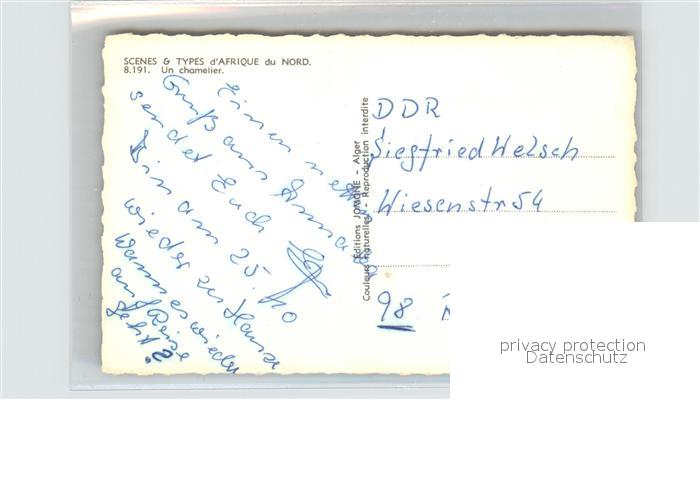 SCENES & TYPES d'AFRIQUE du NORD.
8.191. Un chamelier.
Einen
Gruß aus
sendet Euch
Bin am 25. 10
wieder zu Hause
Wann es wieder
auf Reise
geht?
Editions JOMONE - Alger
Couleurs naturelles - Reproduction interdite
DDR
Siegfried Welsch
Wiesenstr 54
98
privacy protection
Datenschutz